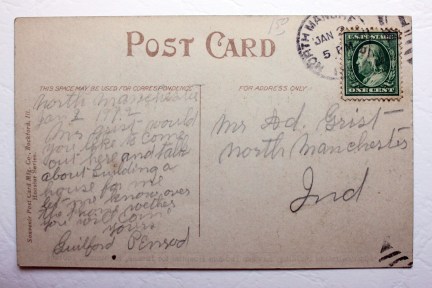 150
POST CARD
NORTH MANCH
JAN
5 P
U.S. POSTAGE
ONE CENT
THIS SPACE MAY BE USED FOR CORRESPONDENCE
FOR ADDRESS ONLY
North Manchester
Jan 2 1912
Mr Grist would
you like to come
out here and talk
about building a
house for me
let me know over
the phone wether
you will come
yours
Guilford Penrod
Mr Ad. Grist
North Manchester
Ind
Souvenir Post Card Mfg. Co., Rockford, Ill.
Hoosier Series.